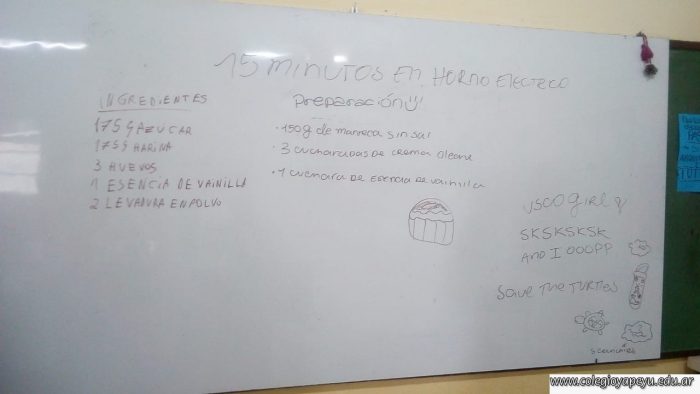 15 MINUTOS EN HORNO ELECTRICO
INGREDIENTES
175 g AZÚCAR
175 g HARINA
3 HUEVOS
1 ESENCIA DE VAINILLA
2 LEVADURA EN POLVO
Preparación
• 150g de manteca sin sal
• 3 cucharadas de crema
• 1 cuchara de esencia de vainilla
VSCO girl
SKSKSKSK
AND I OOOPP
Save THE TURTLES
www.colegioyapeyu.edu.ar